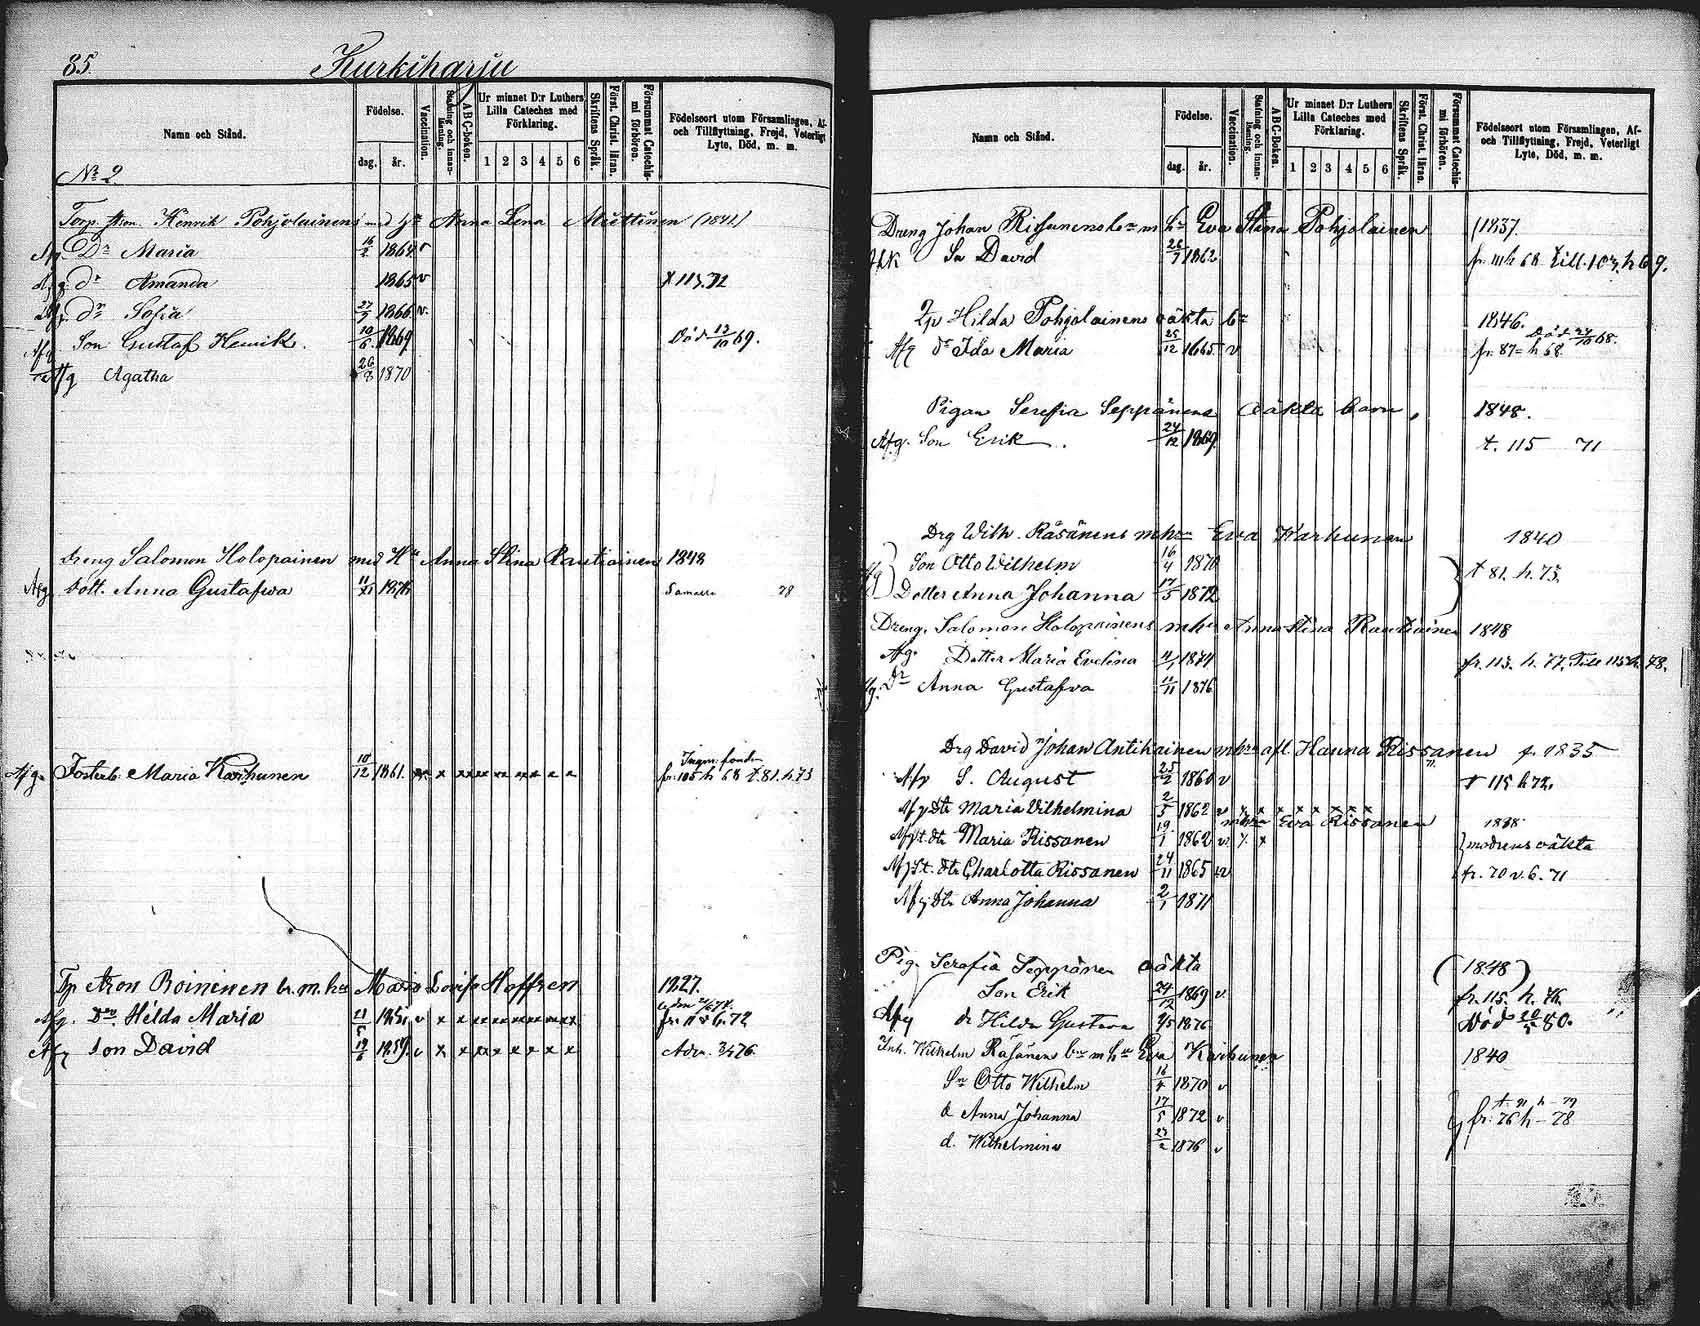 85.
Kurkiharju
Namn och Stånd.
Födelse.
dag. år.
Vaccination.
Stafning och innan-läsning.
ABC-boken.
Ur minnet D:r Luthers Lilla Cateches med Förklaring.
1 2 3 4 5 6
Skriftens Språk.
Först. Christ. läran.
Försummat Catechismi förhören.
Födelseort utom Församlingen, Af- och Tillflyttning, Frejd, Veterligt Lyte, Död, m. m.
No 2.
Henrik Pohjolainens Anna Lena Miettinen (1841)
Dr Maria 1864 v
dr Amanda 1865 v
dr Sofia 27/7 1866 v
Son Gustaf Henrik. 10/6 1869 Död 13/10 69.
Agatha 26/8 1870
Dreng Salomon Holopainen med Hu Anna Stina Rautiainen 1848
Afg. Dott. Anna Gustafva 78
Afg. Fosterb. Maria Karhunen 10/12 1861. x x x x x x x x fr. 105 h 68 t. 81. h. 73
Tp Aron Roininen br. m. hu Maria Lovisa Hoffren 1827.
Afg. Dr. Hilda Maria 21/5 v x x x x x x x x
Afg son David v x x x x x x x
Namn och Stånd.
Födelse.
dag. år.
Vaccination.
Stafning och innan-läsning.
ABC-Boken.
Ur minnet D:r Luthers Lilla Cateches med Förklaring.
1 2 3 4 5 6
Skriftens Språk.
Först. Christ. läran.
Försummat Catechismi förhören.
Födelseort utom Församlingen, Af- och Tillflyttning, Frejd, Veterligt Lyte, Död, m. m.
Dreng Johan Rissanens br m hu Eva Stina Pohjolainen 1837.
Sn David 1862
Hilda Pohjolainens oäkta br 1846.
Afg dr Ida Maria 25/12 1865 v fr. 87 h 68.
Pigan Serefia Seppänens oäkta barn, 1848.
Afg. Son Erik. 24/12 1869. t. 115 71
Drg Wilh. Räsänens m hu Eva Karhunen 1840
Son Otto Wilhelm 16/4 1870
Dotter Anna Johanna 17/5 1872 t 81. h. 75.
Dreng. Salomon Holopainens m hu Anna Stina Rautiainen 1848
Afg. Dotter Maria Evelina 1874 fr. 113. h. 77.
Dr Anna Gustafva 11/11 1876
Drg David Johan Antikainen afl. Hanna Rissanen f. 1835
Afg S. August 25/2 1860 v 115 h 72.
Afg Dtr Maria Vilhelmina 2/5 1862 v x x x x x x x
Eva Rissanen 1838
Maria Rissanen 19/1 1862 v. x modrens oäkta
Charlotta Rissanen 24/11 1865 v fr. 70 v. 6. 71
Afg Dtr Anna Johanna 2/1 1871
Pig. Serafia Seppänen oäkta (1848)
Son Erik 24/12 1869 v. fr. 115. h. 76.
Afg dr Hilda Gustava 1876 Död 80.
Inh. Wilhelm Räsänen br m hu Eva Karhunen 1840
Sn Otto Wilhelm 16/4 1870 v
d Anna Johanna 17/5 1872 v fr. 76 h - 78
d. Wilhelmina 1876 v